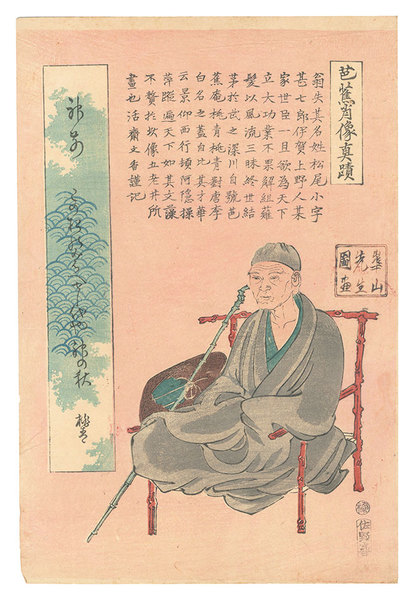 芭蕉肖像真蹟
翁失其名姓松尾小字
甚七郎伊賀上野人某
家世臣一旦欲為天下
立大功業不果解組薙
髮以風流三昧終世結
茅於武之深川自號芭
蕉庵桃青桃青對唐李
白名之蓋自比其才華
云景仰西行頓阿隠操
萍蹤遍天下如其文藻
不贅於茲像五老井所
畫也活齋文香謹記
崋山
先生
圖画
神前
此松のみはえせし代や神の秋
桃青